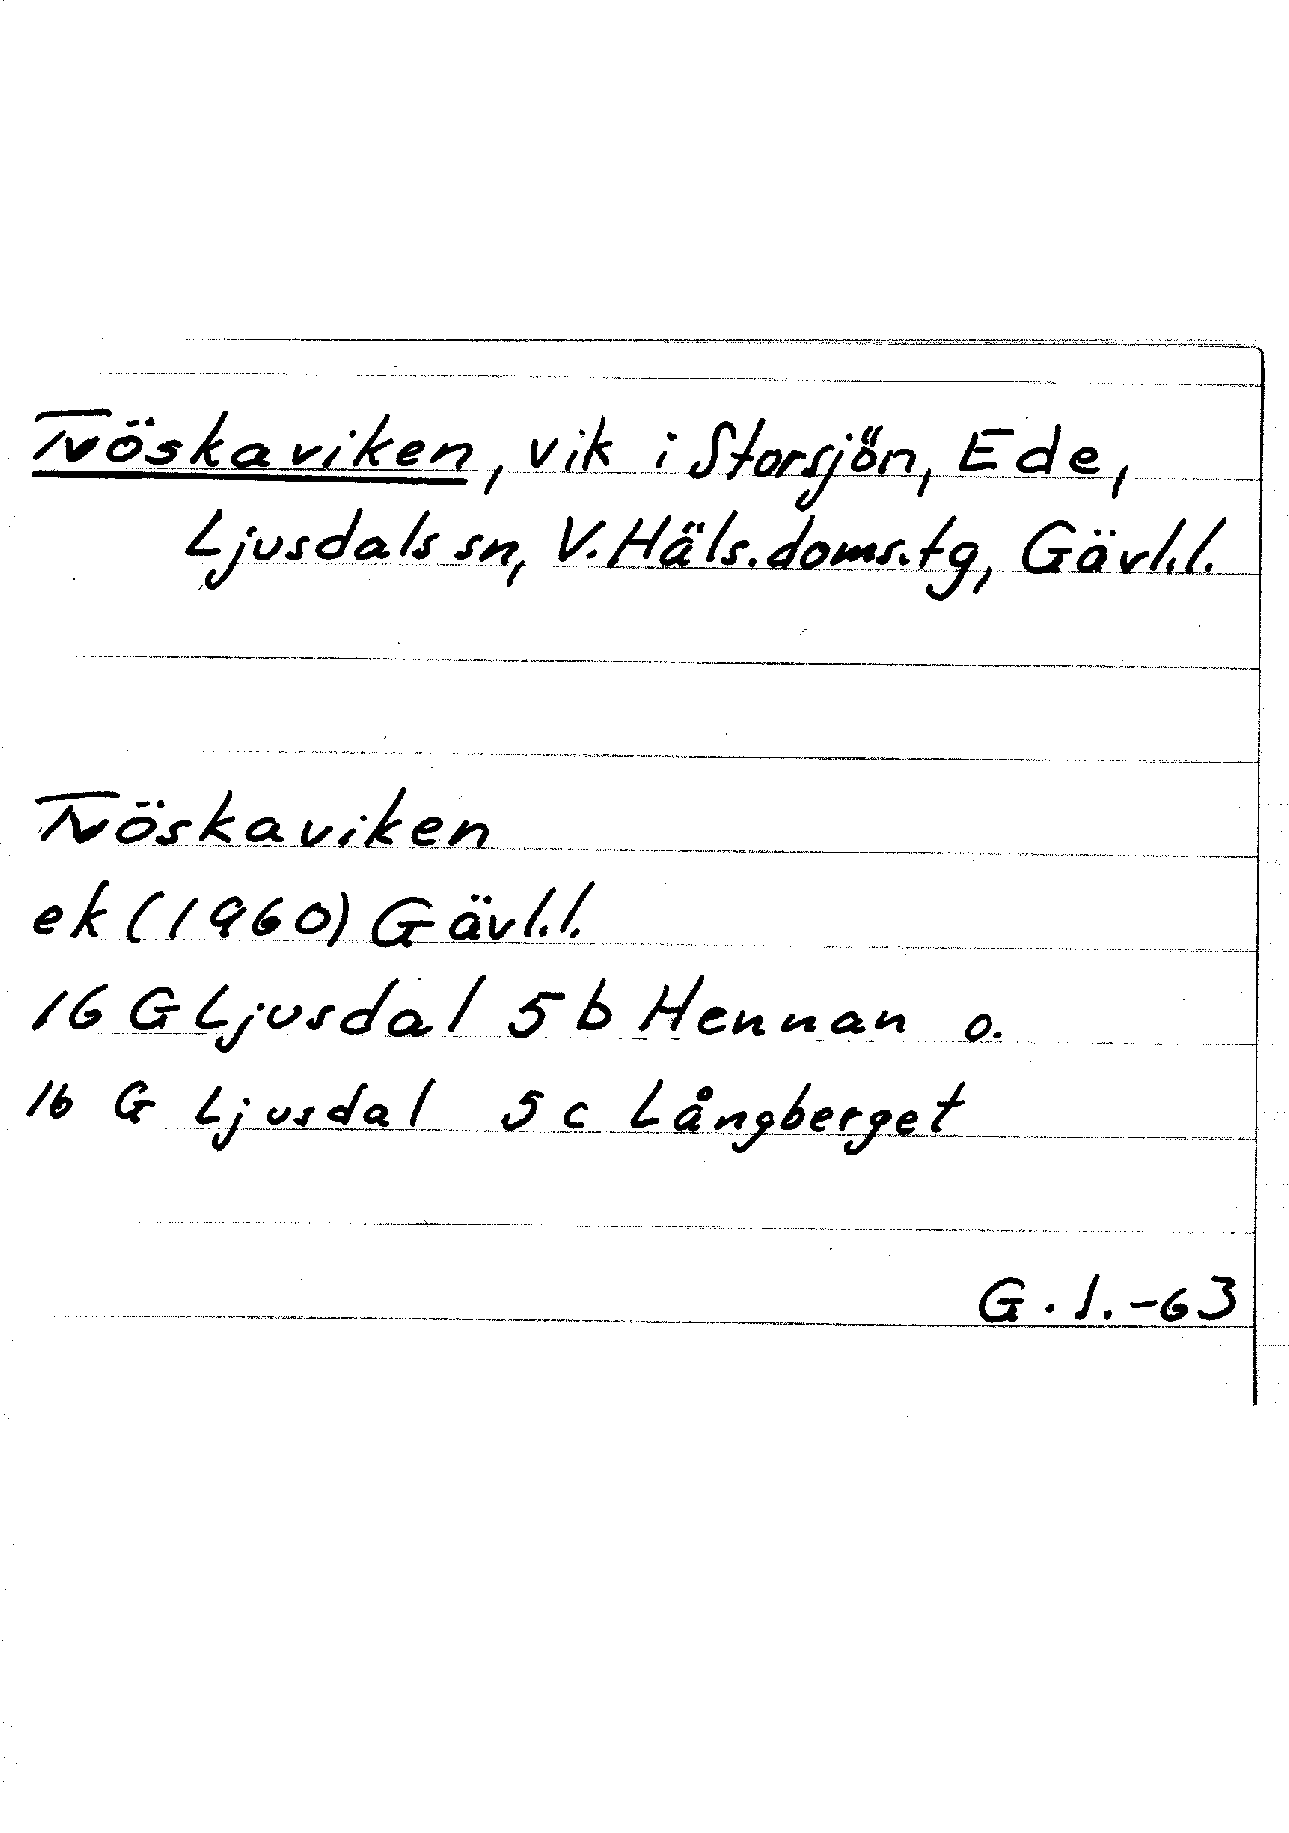 Tvöskaviken, vik i Storsjön, Ede,
Ljusdals sn, V. Häls. doms.tg, Gävl.l.
Tvöskaviken
ek (1960) Gävl.l.
16 G Ljusdal 5 b Hennan o.
16 G Ljusdal 5 c Långberget
G. l. -63